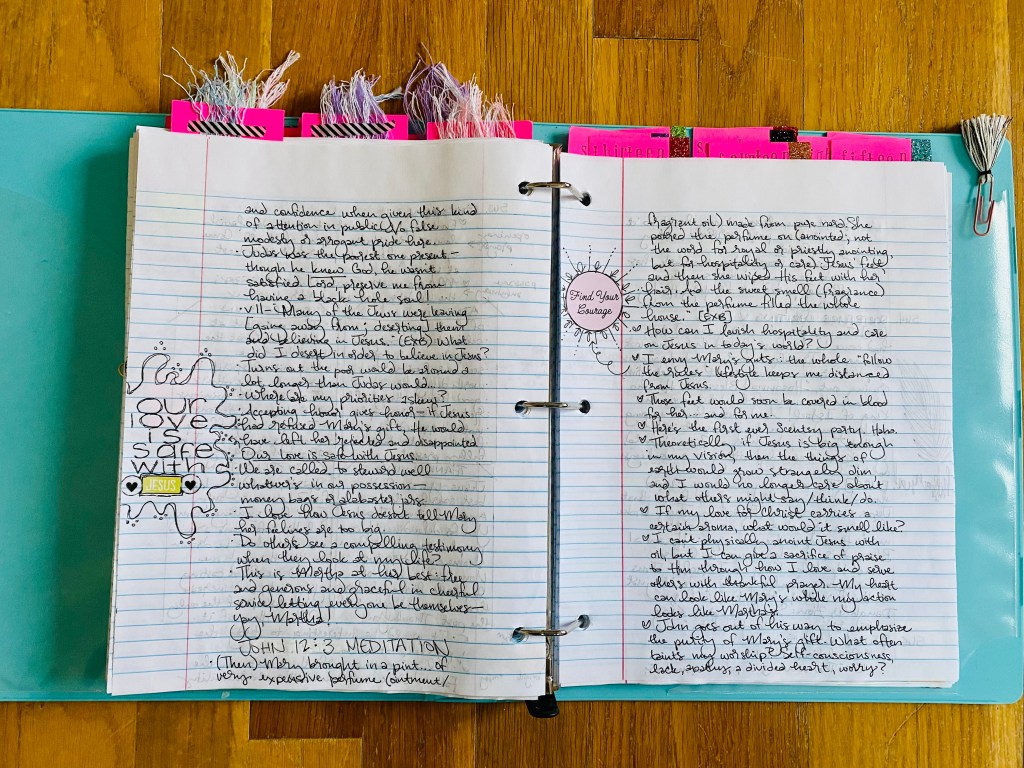 and confidence when given this kind
of attention in public. No false
modesty or arrogant pride here.
· Judas was the poorest one present—
though he knew God, he wasn't
satisfied. Lord, preserve me from
having a black hole soul!
· v11– "Many of the Jews were leaving
[going away from; deserting] them
and believing in Jesus." (EXB) What
did I desert in order to believe in Jesus?
· Turns out the poor would be around a
lot longer than Judas would...
· Where are my priorities
· Accepting honor gives honor— if Jesus
had refused Mary's gift, He would
have left her rejected and disappointed.
· Our love is safe with Jesus.
· We are called to steward well
whatever's in our possession—
money bags or alabaster jars.
· I love how Jesus doesn't tell Mary
her feelings are too big.
· Do others see a compelling testimony
when they look at my life?
· This is Martha at her best: they
and generous and graceful in cheerful
service, letting everyone be themselves—
yay, Martha!
JOHN 12:3 MEDITATION
· (Then) Mary brought in a pint... of
very expensive perfume (ointment/
our
love
is
safe
with
JESUS
sthirteen
fifteen
fragrant oil) made from pure nard. She
poured the perfume on (anointed; not
the word for royal or priestly anointing,
but for hospitality or care) Jesus' feet,
and then she wiped His feet with her
hair. And the sweet smell (fragrance)
from the perfume filled the whole
house." [EXB]
♡ How can I lavish hospitality and care
on Jesus in today's world?
♡ I envy Mary's guts: the whole "follow
the rules" lifestyle keeps me distanced
from Jesus.
♡ Those feet would soon be covered in blood
for her... and for me.
♡ Here's the first ever Scentsy party. Haha.
♡ Theoretically, if Jesus is big enough
in my vision, then the things of
earth would grow strangely dim
and I would no longer care about
what others might say/think/do.
♡ If my love for Christ carries a
certain aroma, what would it smell like?
♡ I can't physically anoint Jesus with
oil, but I can give a sacrifice of praise
to Him through how I love and serve
others with thankful prayer. My heart
can look like Mary's while my action
looks like Martha's.
♡ John goes out of his way to emphasize
the purity of Mary's gift. What often
taints my worship? Self-consciousness,
lack, apathy, a divided heart, worry?
Find Your
Courage